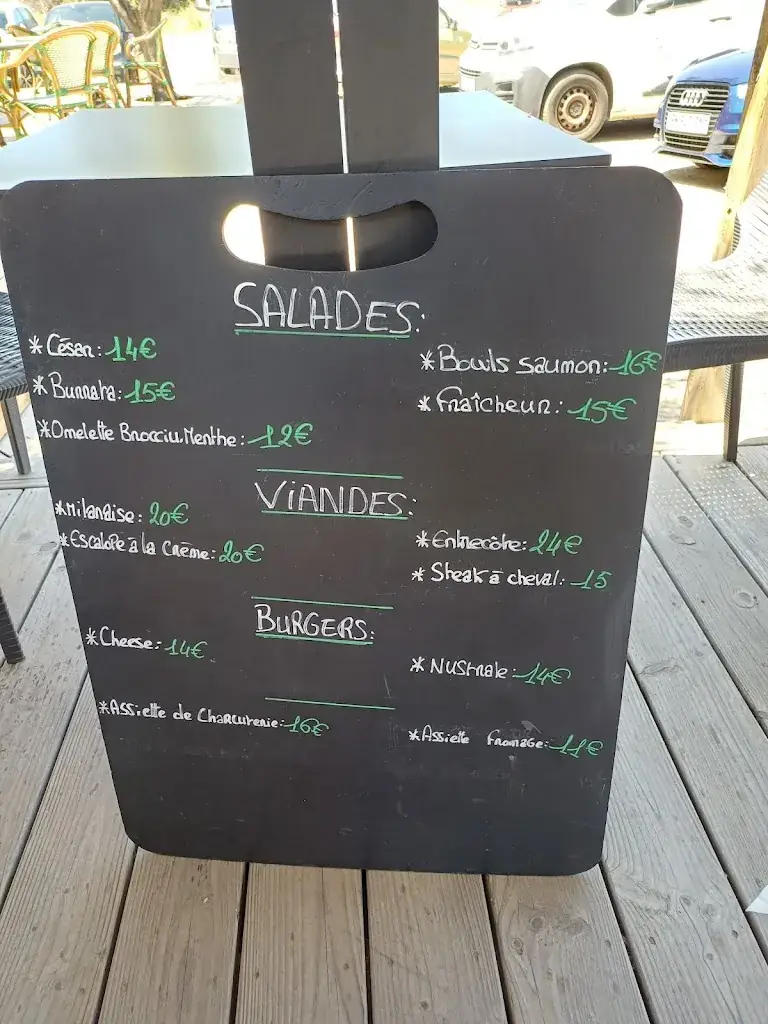 SALADES:
*César: 14€
*Bowls saumon: 16€
*Burrata: 15€
*Fraîcheur: 15€
*Omelette Brocciu, Menthe: 12€
VIANDES:
*Milanaise: 20€
*Entrecôte: 24€
*Escalope à la Crème: 20€
*Steak à cheval: 15
BURGERS:
*Cheese: 14€
*Nustrale: 14€
*Assiette de Charcuterie: 16€
*Assiette fromage: 11€